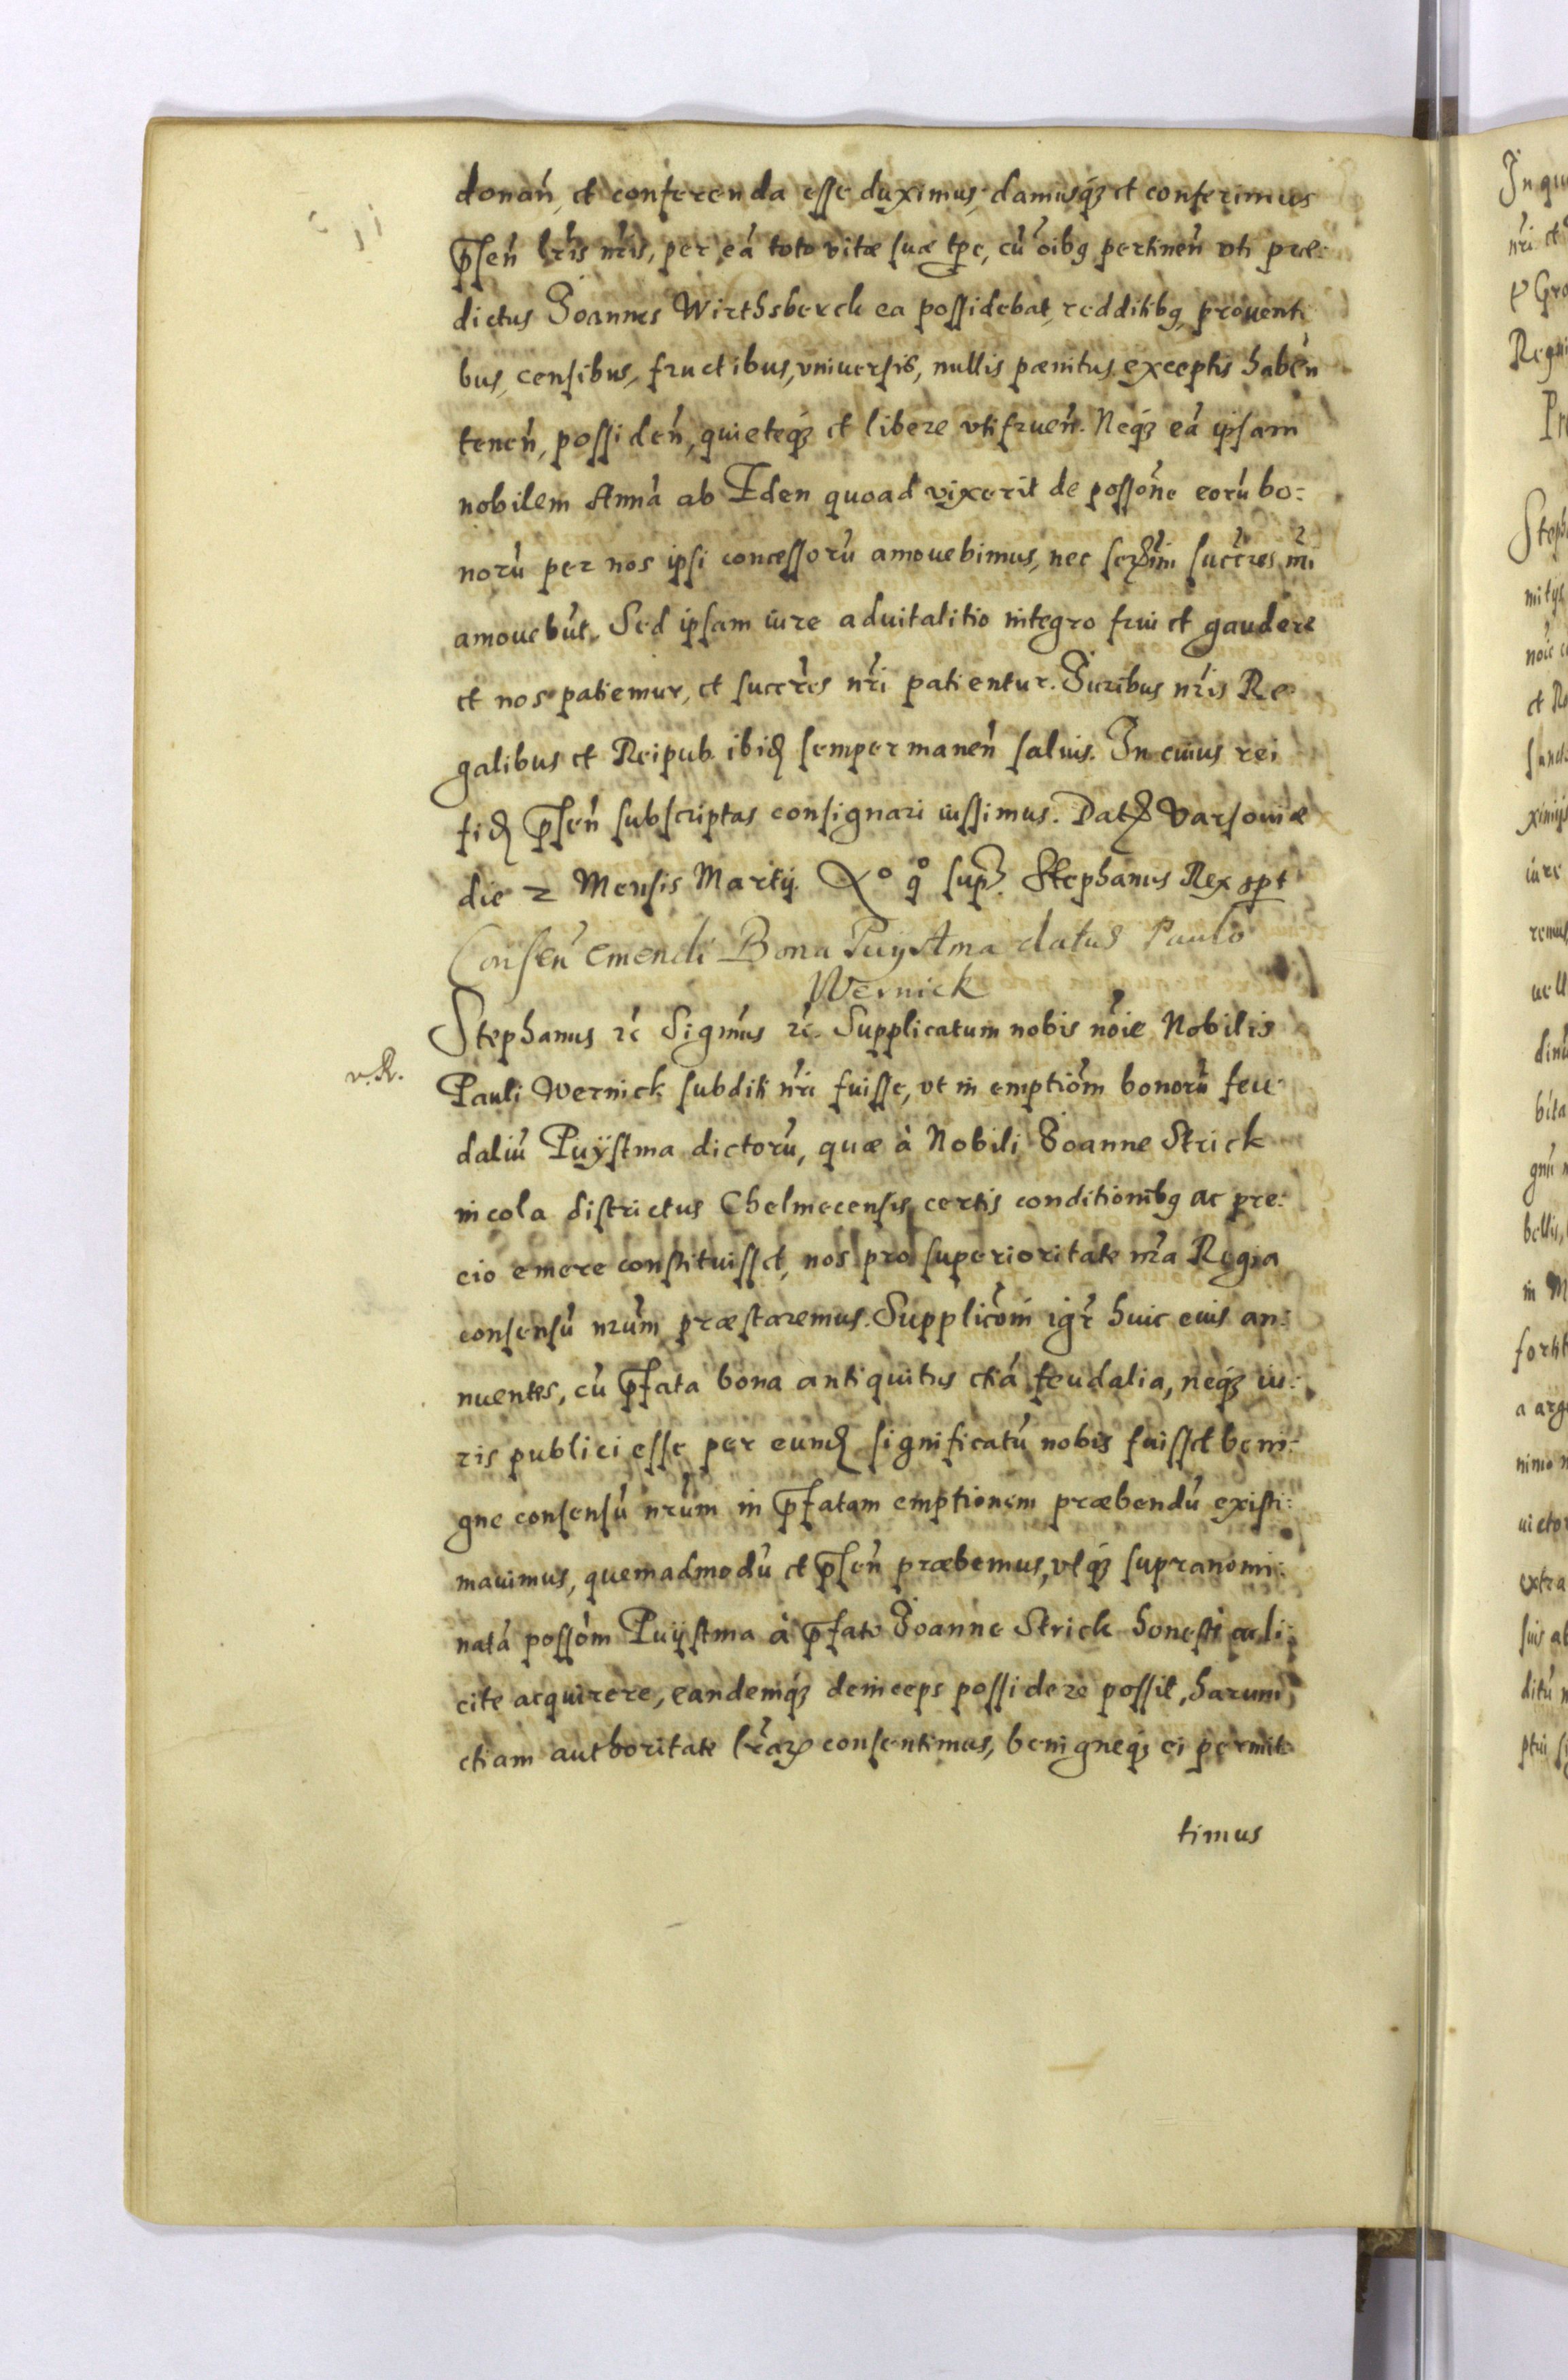 donań, et conferenda esse duximus, damusq́ꝫ et conferimus
p̄seń lr̃is nr̃is, per eá toto vitæ suæ tp̃e, cú oĩbꝫ pertineń vti præ:
dictus Joannes Wirthsberck ea possidebat, redditibꝫ, prouenti
bus, censibus, fructibus, vniuersis, nullis pænitus exceptis habeń
teneń, possideń, quieteq́ꝫ et libere vtifrueń. Neq́ꝫ eá ipsam
nobilem Anná ab Eden quoad vixerit de possoñe eorú bo:
norú per nos ipsi concessorú amouebimus, nec serm̃i succr̃es nr̃i
amouebút. Sed ipsam iure aduitalitio integro frui et gaudere
et nos patiemur, et succr̃es nr̃i patientur. Juribus nr̃is Re:
galibus et Reipub. ibidꝫ semper maneń saluis. In cuius rei
fidꝫ p̄seń subscriptas consignari iussimus. Datꝫ Varsouiæ
die 2 Mensis Martij. Stephanus Rex spt
Conseń emendi Bona Puystma datus Paulo
Wernick
Stephanus rć Sigmús rć. Supplicatum nobis nõie Nobilis
v.R.
Pauli Wernick subditi nr̃i fuisse, vt in emptiõm bonorú feu:
daliú Puÿstma dictorú, quæ à Nobili Joanne Strick
incola districtus Chelmecensis certis conditionibꝫ ac pre:
cio emere constituisset, nos pro superioritate nr̃a Regia
consensú nr̃um præstaremus. Supplicõni igr̃ huic euis an:
nuentes, cú p̄fata bona antiquitus etiá feudalia, neq́ꝫ iu:
ris publici esse per eumdꝫ significatú nobis fuisset beni:
gne consensú nr̃um in p̄fatam emptionem præbendú existi:
mauimus, quemadmodú et p̄seń præbemus, vtq́ꝫ supranomi:
natá possõm Puÿstma à p̄fato Joanne Strick honeste ac li:
cite acquirere, eandemq́ꝫ deinceps possidere possit, harum
etiam authoritate lr̃arꝫ consentimus, benigneq́ꝫ ei permit:
timus